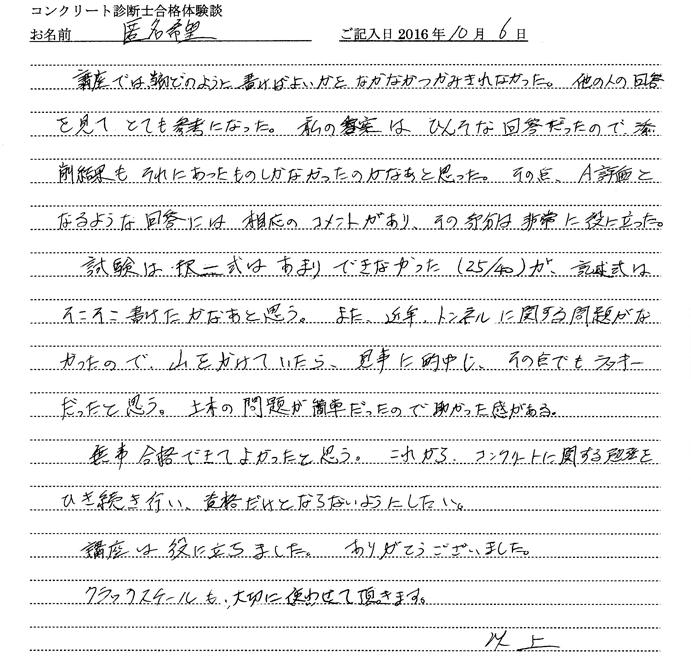 コンクリート診断士合格体験談
お名前 匿名希望 ご記入日 2016年10月6日
講座では どのように書けばよいかと なかなかつかみきれなかった。 他の人の回答
を見て とても参考になった。 私の は ひんそな回答だったので、添
削結果も それにあったものしかなかったのかなあと思った。 その点、A評価と
なるような回答には 相応の コメントがあり、その部分は 非常に役に立った。
試験は 択一式は あまり できなかった (25/40)が、記述式は
そこそこ 書けたかなあと思う。 また、近年、トンネルに関する問題がな
かったので、山をかけていたら、見事に的中し、その点でもラッキー
だったと思う。 土木の問題が簡単だったので助かった感がある。
無事 合格できてよかったと思う。 これから、コンクリートに関する を
ひき続き行い、資格だけとならないようにしたい。
講座は 役に立ちました。 ありがとうございました。
クラックスケールも、大切に使わせて頂きます。
以上